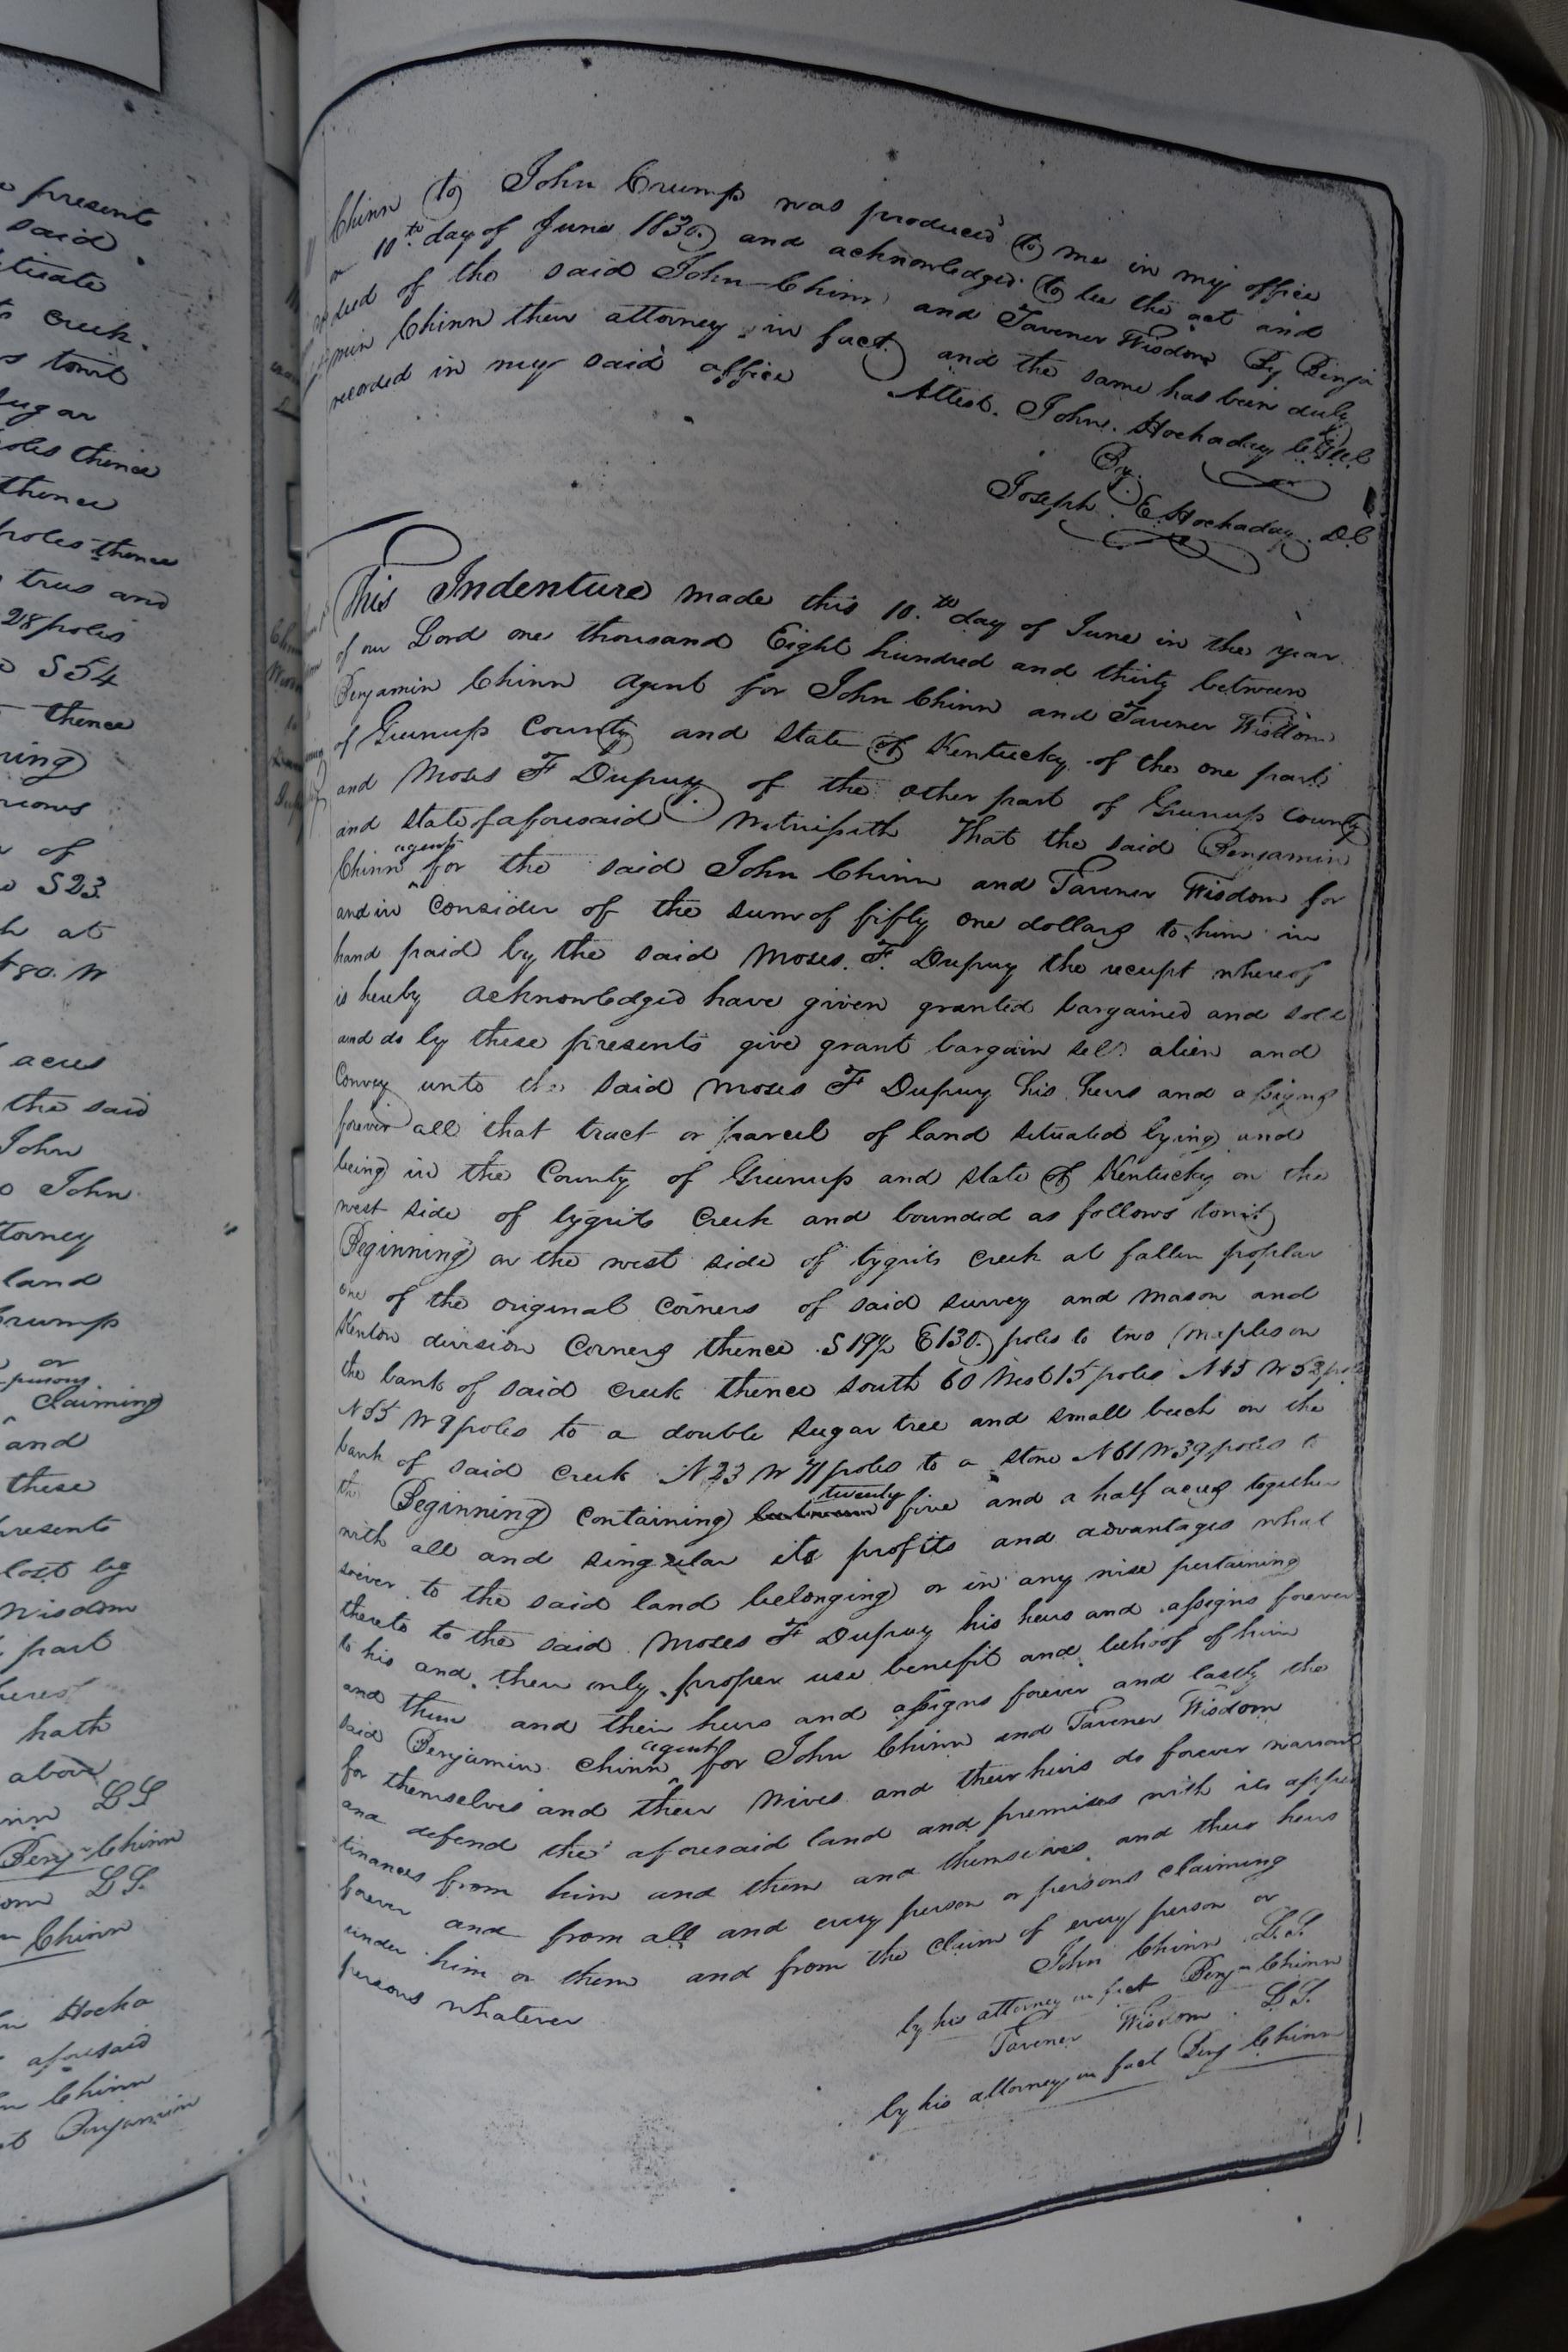 e present
said
ticate
creek.
s towit
sugar
poles thence
thence
poles thence
trus and
28 poles
S 54
thence
ning
rious
of
S 23
h at
80. W
acres
the said
John
o John
torney
land
Crump
or
persons
claiming
and
these
presents
lost by
Wisdom
part
hath
above
inn LS
Benjn Chinn
om LS.
Chinn
Hocka
aforesaid
n Chinn
Benjamin
Chinn to John Crump was produced to me in my office
10th day of June 1830. and acknowledged to be the act and
deed of the said John Chinn and Tavener Wisdom By Benja
min Chinn their attorney in fact and the same has been duly
recorded in my said office
Attest. John. Hockaday Clk
By
Joseph. E Hockaday. D.C
This Indenture made this 10.th day of June in the year
of our Lord one thousand Eight hundred and thirty between
Benjamin Chinn agent for John Chinn and Tavener Wisdom
of Greenup County and state of Kentucky of the one part
and Moses F Dupuy of the other part of Greenup County
and state of aforesaid Witnesseth That the said Benjamin
Chinn agent for the said John Chinn and Tavener Wisdom for
and in consider of the sum of fifty one dollars to him in
hand paid by the said Moses. F. Dupuy the receipt whereof
is hereby acknowledged have given granted bargained and sold
and do by these presents give grant bargain sell alien and
Convey unto the said Moses F Dupuy his heirs and assigns
forever all that tract or parcel of land situated lying and
being in the County of Greenup and state of Kentucky on the
west side of tygrits Creek and bounded as follows towit
Beginning on the west side of tygrits creek at fallen poplar
one of the original corners of said survey and Mason and
Kenton division Corners thence S 19½ E 130. poles to two maples on
the bank of said creek thence south 60 West 15 poles N 45 W 52 poles
N 55 W 9 poles to a double sugar tree and small beech on the
bank of said creek N 23 W 71 poles to a stone N 61 W 39 poles to
the Beginning containing twenty five and a half acres together
with all and singular its profits and advantages what
soever to the said land belonging or in any wise pertaining
thereto to the said Moses F Dupuy his heirs and assigns forever
to his and their only proper use benefit and behoof of him
and them and their heirs and assigns forever and lastly the
said Benjamin Chinn agent for John Chinn and Tavener Wisdom
for themselves and their wives and their heirs do forever warrant
and defend the aforesaid land and premises with its appur
tinances from him and them and themselves and their heirs
forever and from all and every person or persons claiming
under him or them and from the claim of every person or
persons whatever
John Chinn L.S.
by his attorney in fact Benjn Chinn
Tavener Wisdom. L.S.
by his attorney in fact Benj Chinn